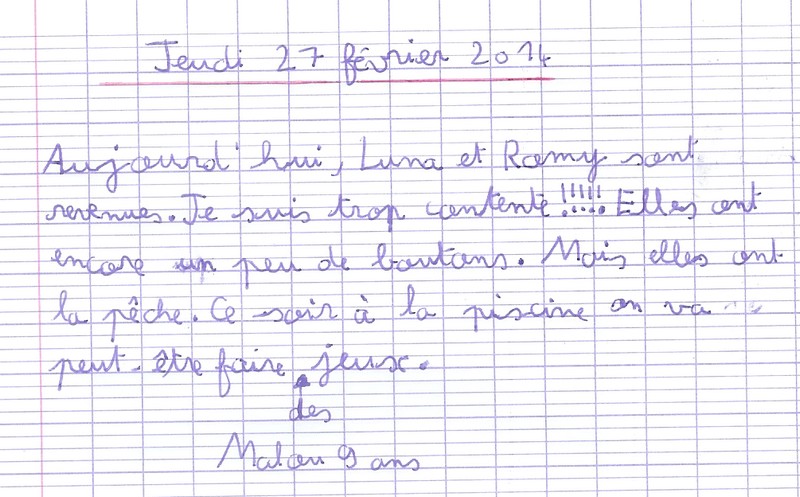 Jeudi 27 février 2014
Aujourd'hui, Luna et Romy sont
revenues. Je suis trop contente !!!!! Elles ont
encore un peu de boutons. Mais elles ont
la pêche. Ce soir à la piscine on va
peut-être faire jeux.
des
Malou 9 ans